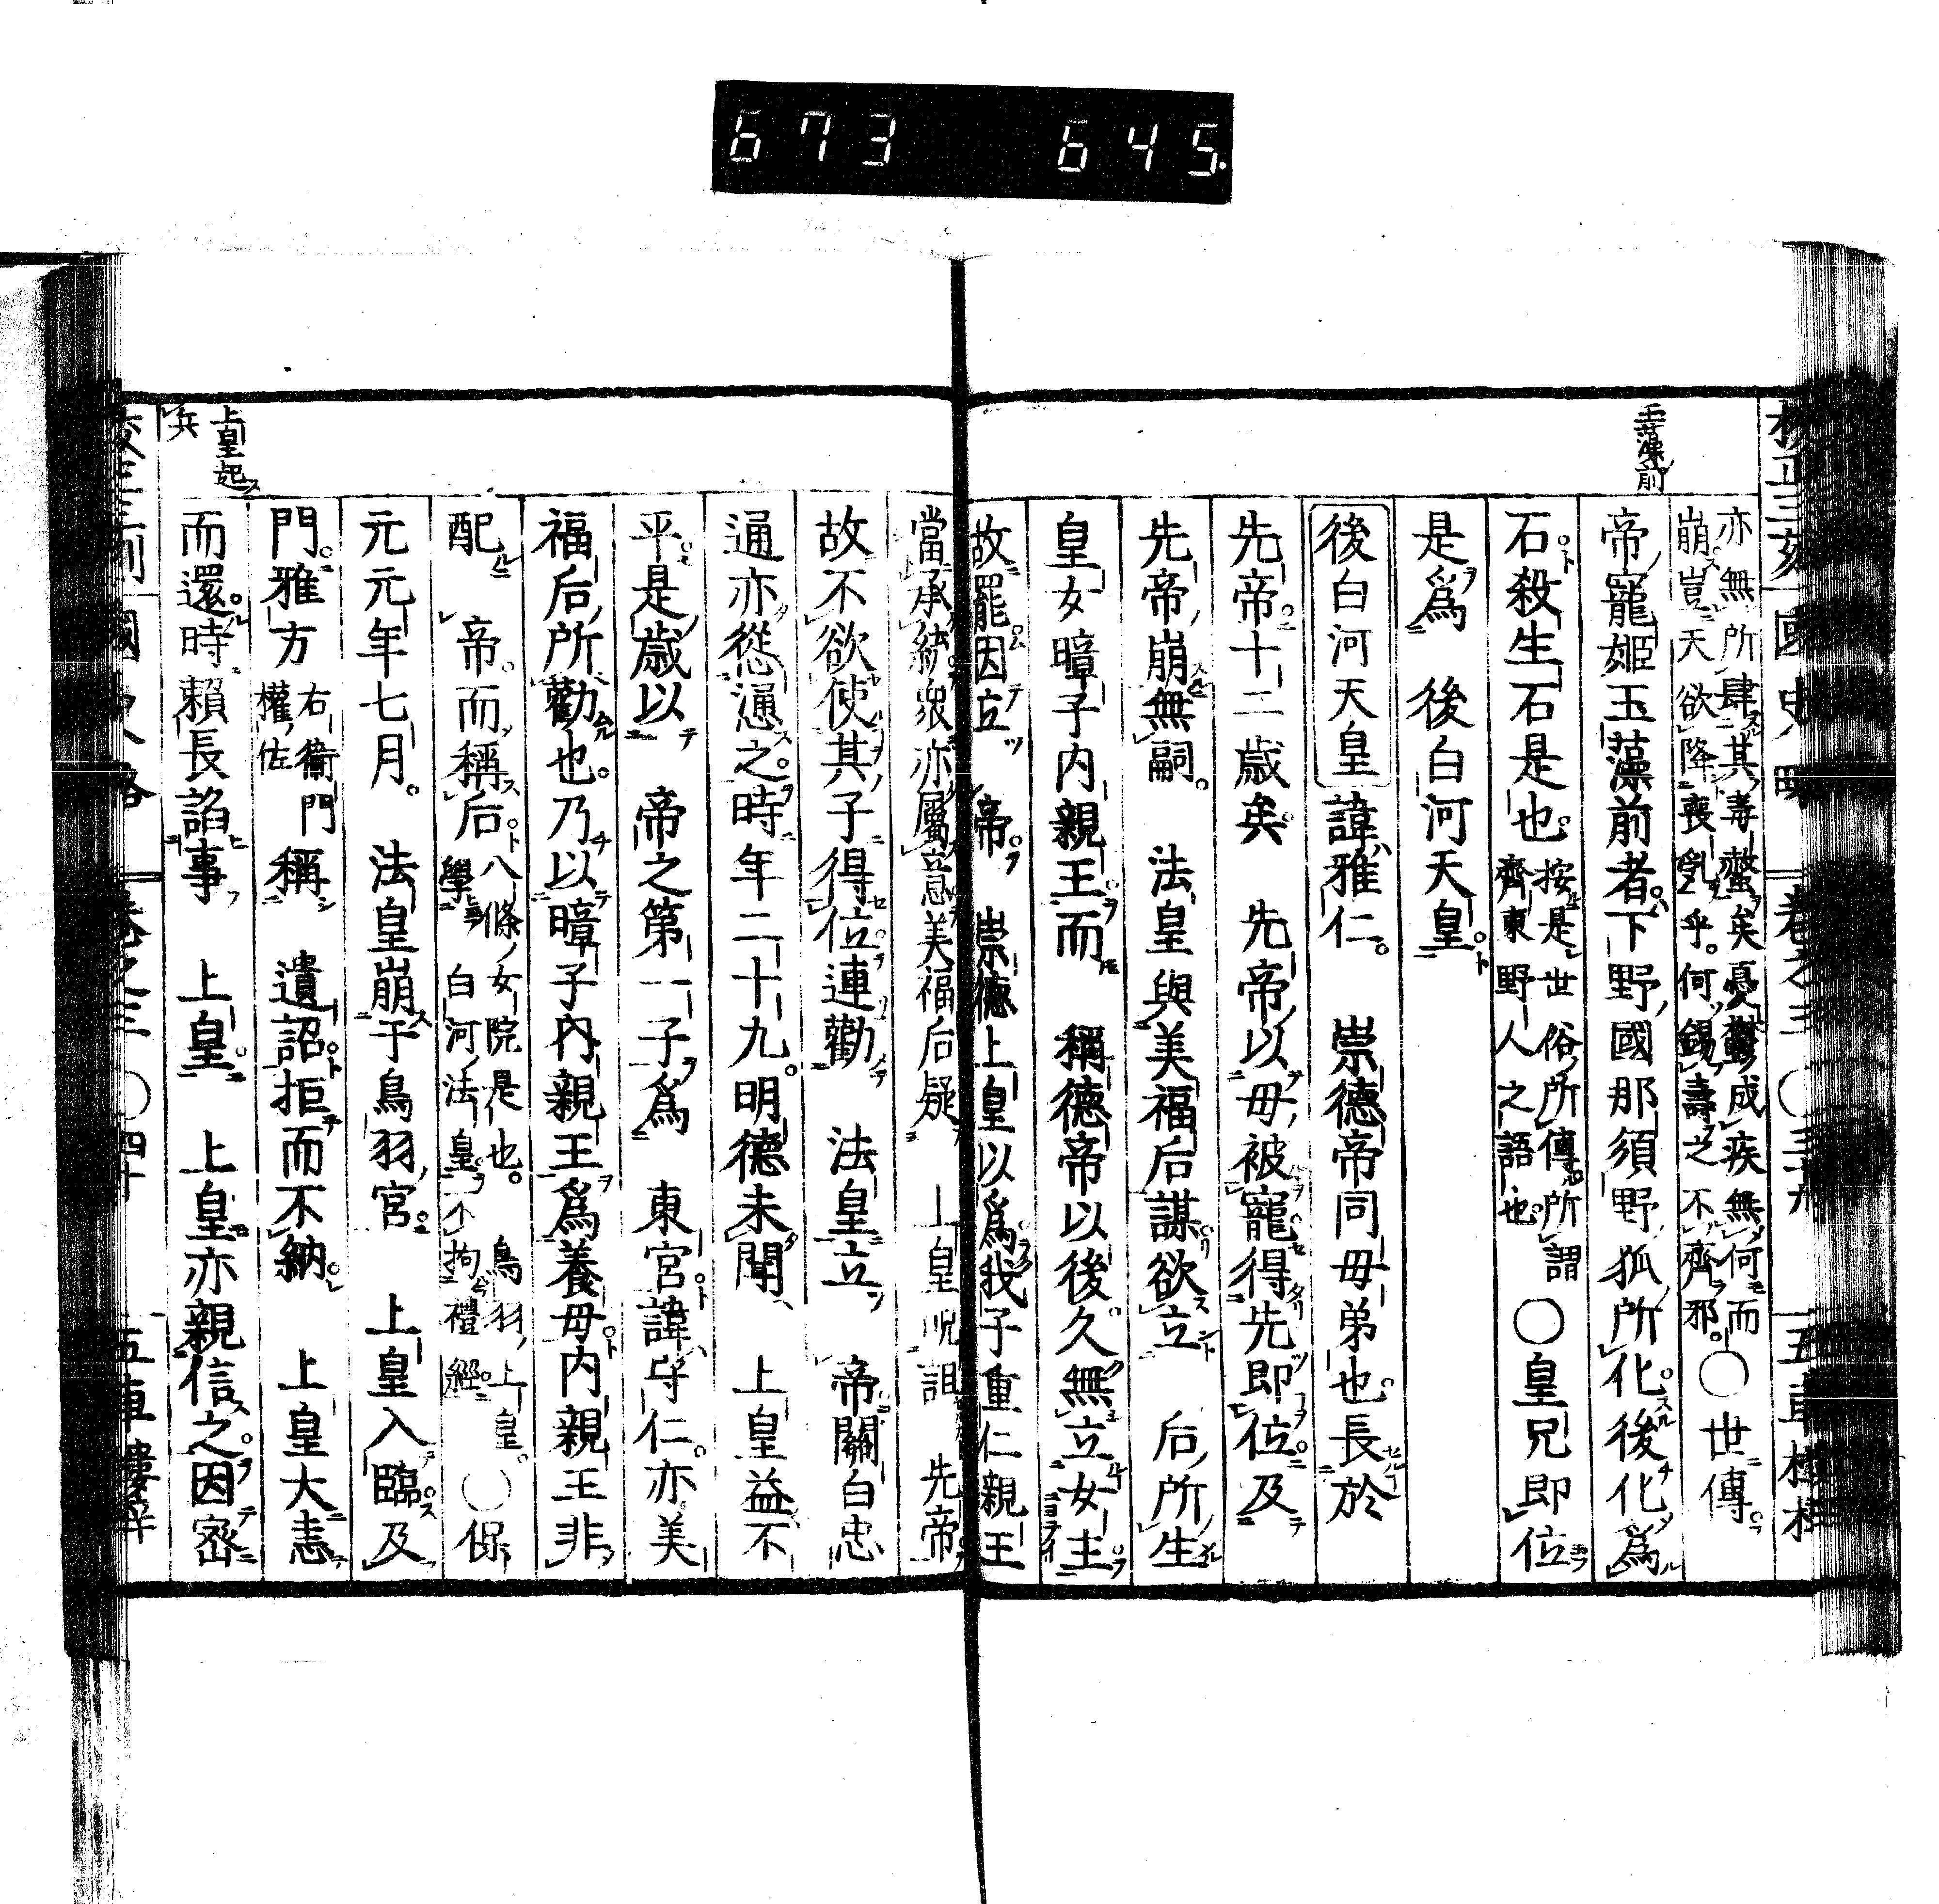 673 645.
玉藻前
亦無所肆其毒螫矣憂鬱成疾無何而
崩豈天欲降喪亂乎何錫壽之不齊邪○世傳
帝寵姬玉藻前者下野國那須野狐所化後化爲
石殺生石是也按是世俗所傳所謂
齊東野人之語也○皇兄即位
是爲 後白河天皇
後白河天皇諱雅仁。 崇德帝同母弟也長於
先帝十二歳矣 先帝以母被寵得先即位及
先帝崩無嗣。 法皇與美福后謀欲立 后所生
皇女暲子内親王而 稱德帝以後久無立女主
故罷因立 帝 崇德上皇以爲我子重仁親王
當承統衆亦屬意美福后疑 上皇呪詛 先帝
故不欲使其子得位連勸 法皇立 帝關白忠
通亦慫慂之時年二十九。明德未聞、 上皇益不
平是歳以 帝之第一子爲 東宮諱守仁亦美
福后所勸也。乃以暲子内親王爲養母内親王非
配 帝而稱后八條女院是也。鳥羽上皇
學白河法皇不拘禮經○保
元元年七月。 法皇崩于鳥羽宮 上皇入臨及
門雅方右衞門
權佐稱 遺詔拒而不納 上皇大恚
而還時賴長諂事 上皇 上皇亦親信之因密
上皇起
兵